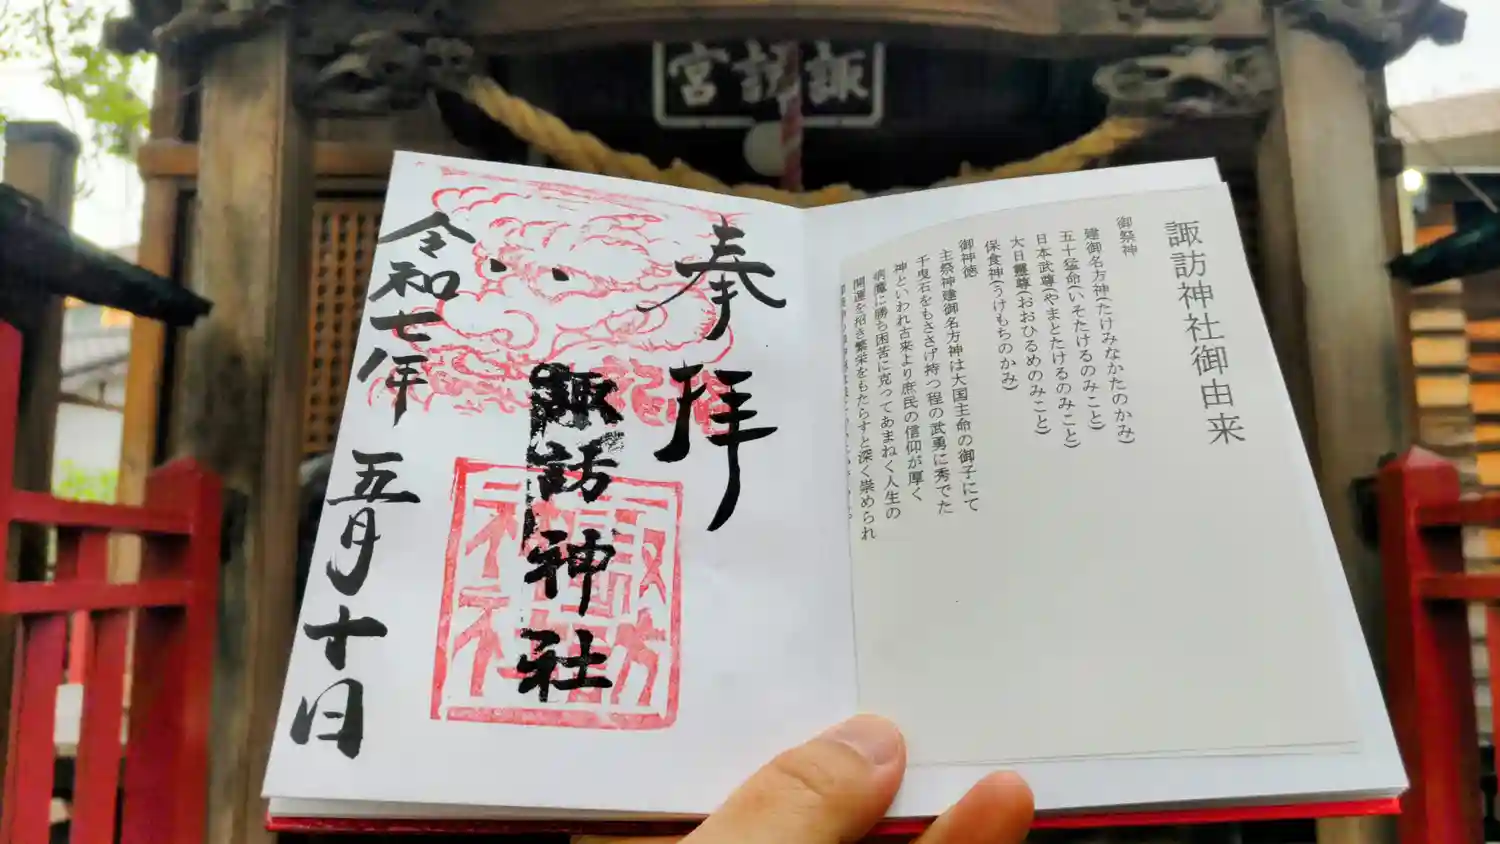 諏訪宮
奉拝
諏訪神社
諏訪
神社
令和七年五月十日
諏訪神社御由来
御祭神
建御名方神(たけみなかたのかみ)
五十猛命(いそたけるのみこと)
日本武尊(やまとたけるのみこと)
大日孁尊(おおひるめのみこと)
保食神(うけもちのかみ)
御神徳
主祭神建御名方神は大国主命の御子にて
千曳石をもささげ持つ程の武勇に秀でた
神といわれ古来より庶民の信仰が厚く
病魔に勝ち困苦に克ってあまねく人生の
開運を招き繁栄をもたらすと深く崇められ